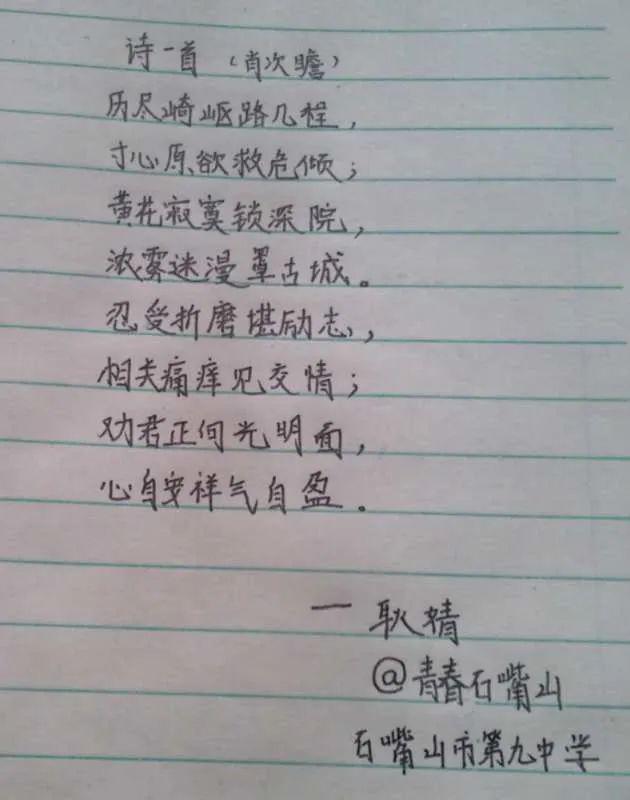 诗一首（肖次瞻）
历尽崎岖路几程，
寸心原欲救危倾；
黄花寂寞锁深院，
浓雾迷漫罩古城。
忍受折磨堪励志，
相关痛痒见交情；
劝君正向光明面，
心自安祥气自盈。
一 耿婧
@青春石嘴山
石嘴山市第九中学